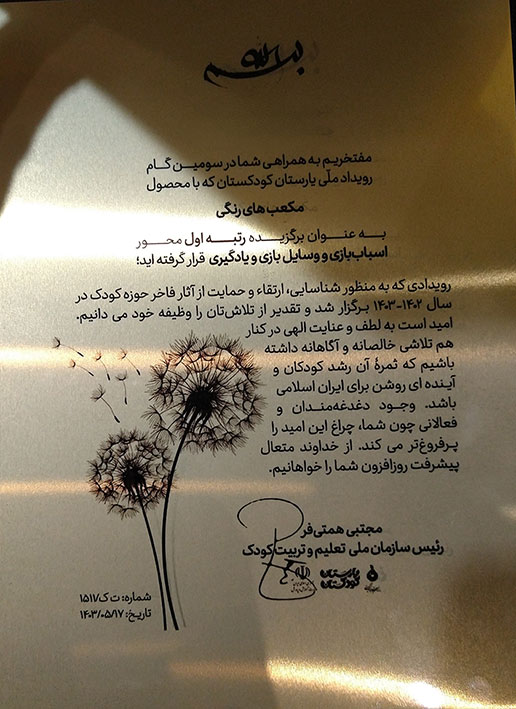 بسم الله
مفتخریم به همراهی شما در سومین گام
رویداد ملّی پارستان کودکستان که با محصول
مکعب های رنگی
به عنوان برگزیده رتبه اول محور
اسباب‌بازی و وسایل بازی و یادگیری قرار گرفته اید؛
رویدادی که به منظور شناسایی، ارتقاء و حمایت از آثار فاخر حوزه کودک در
سال ۱۴۰۲-۱۴۰۳ برگزار شد و تقدیر از تلاش‌تان را وظیفه خود می دانیم.
امید است به لطف و عنایت الهی در کنار
هم تلاشی خالصانه و آگاهانه داشته
باشیم که ثمرهٔ آن رشد کودکان و
آینده ای روشن برای ایران اسلامی
باشد. وجود دغدغه‌مندان و
فعالانی چون شما، چراغ این امید را
پرفروغ‌تر می کند. از خداوند متعال
پیشرفت روزافزون شما را خواهانیم.
مجتبی همتی‌فر
رئیس سازمان ملی تعلیم و تربیت کودک
پارستان
کودکستان
شماره: ت ک/۱۵۱۷
تاریخ: ۱۴۰۳/۰۵/۱۷